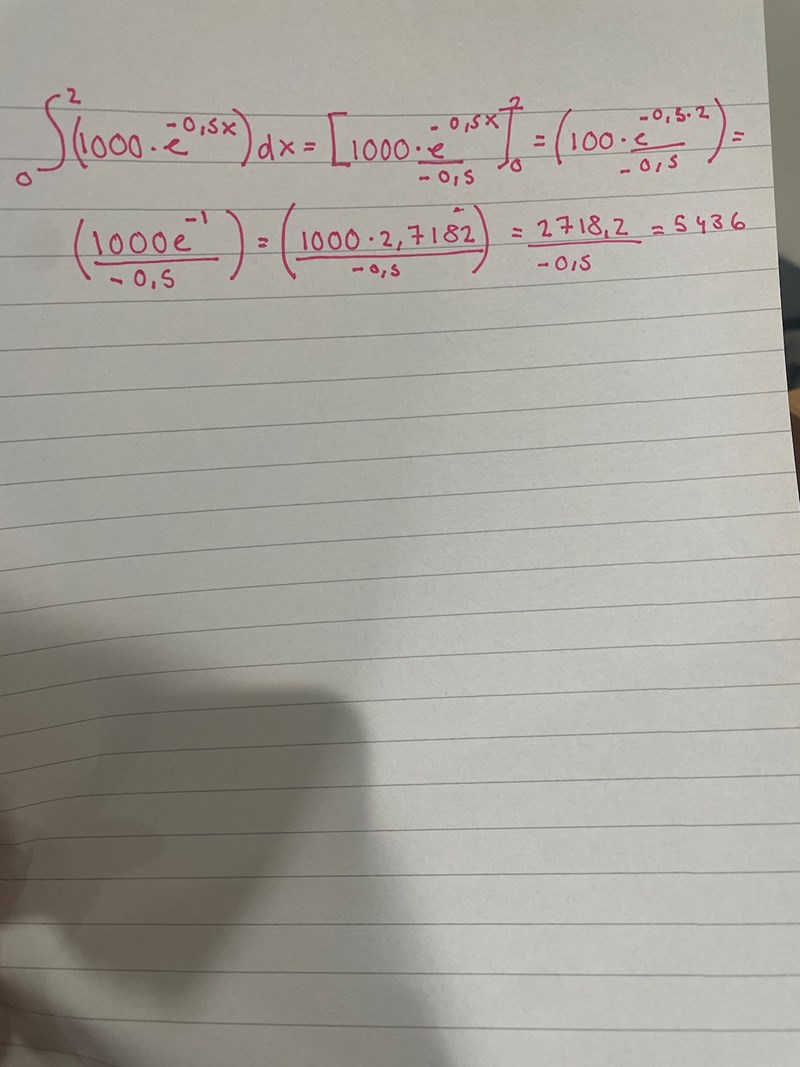 ∫₀² (1000 · e^(-0,5x)) dx = [1000 · e^(-0,5x)/-0,5]₀² = (100 · e^(-0,5·2)/-0,5) =
(1000e^(-1)/-0,5) = (1000 · 2,7182/-0,5) = 2718,2/-0,5 = 5436